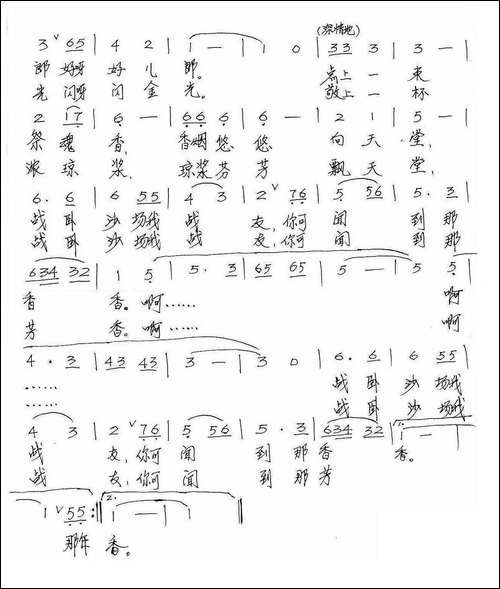 (深情地)
3 ᵛ 65 | 4 2 | 1 — | 1 0 | 33 3 | 3 — |
郎 好呀 好 儿 郎。 点上 一 束
光 闪呀 闪 金 光。 敬上 一 杯
2 17 | 6 — | 66 6 | 6 — | 2 1 | 5 — |
祭 魂 香, 香烟 悠 悠 向 天 堂,
浓 琼 浆, 琼浆 芬 芳 飘 天 堂,
6. 6 | 6 55 | 4 3 | 2 ᵛ 76 | 5 56 | 5. 3 |
战 卧 沙 场我 战 友, 你可 闻 到 那
战 卧 沙 场我 战 友, 你可 闻 到 那
634 32 | 1 5 | 5. 3 | 65 65 | 5 — | 5 5 |
香 香。 啊…… 啊
芳 香。 啊…… 啊
4. 3 | 43 43 | 3 — | 3 0 | 6. 6 | 6 55 |
…… 战 卧 沙 场我
…… 战 卧 沙 场我
4 3 | 2 ᵛ 76 | 5 56 | 5. 3 | 634 32 | 1. 1 — |
战 友, 你可 闻 到 那 香 香。
战 友, 你可 闻 到 那 芳
1 ᵛ 55 :‖ 2. 1 — | 1 — ‖
那年 香。